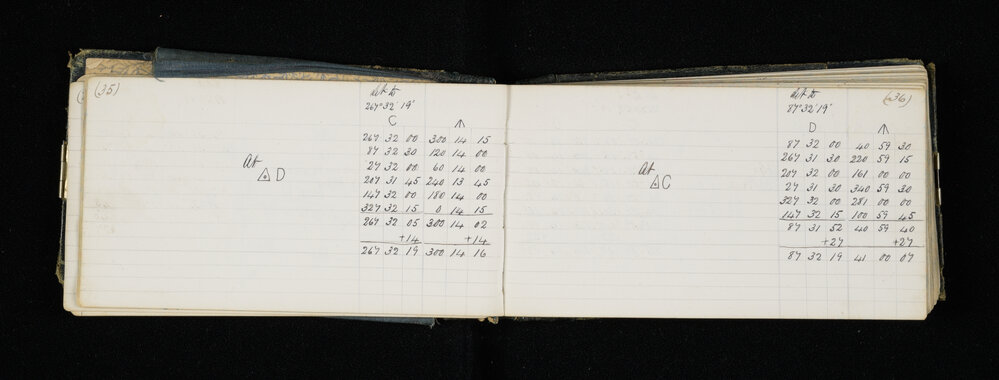 (35)
Set to
267° 32' 19"
C ↑
267 32 00 300 14 15
87 32 30 120 14 00
27 32 00 60 14 00
207 31 45 240 13 45
147 32 00 180 14 00
327 32 15 0 14 15
267 32 05 300 14 02
+14 +14
267 32 19 300 14 16
At
△ D
(36)
Set to
87° 32' 19"
D ↑
87 32 00 40 59 30
267 31 30 220 59 15
207 32 00 161 00 00
27 31 30 340 59 30
327 32 00 281 00 00
147 32 15 100 59 45
87 31 52 40 59 40
+27 +27
87 32 19 41 00 07
At
△ C